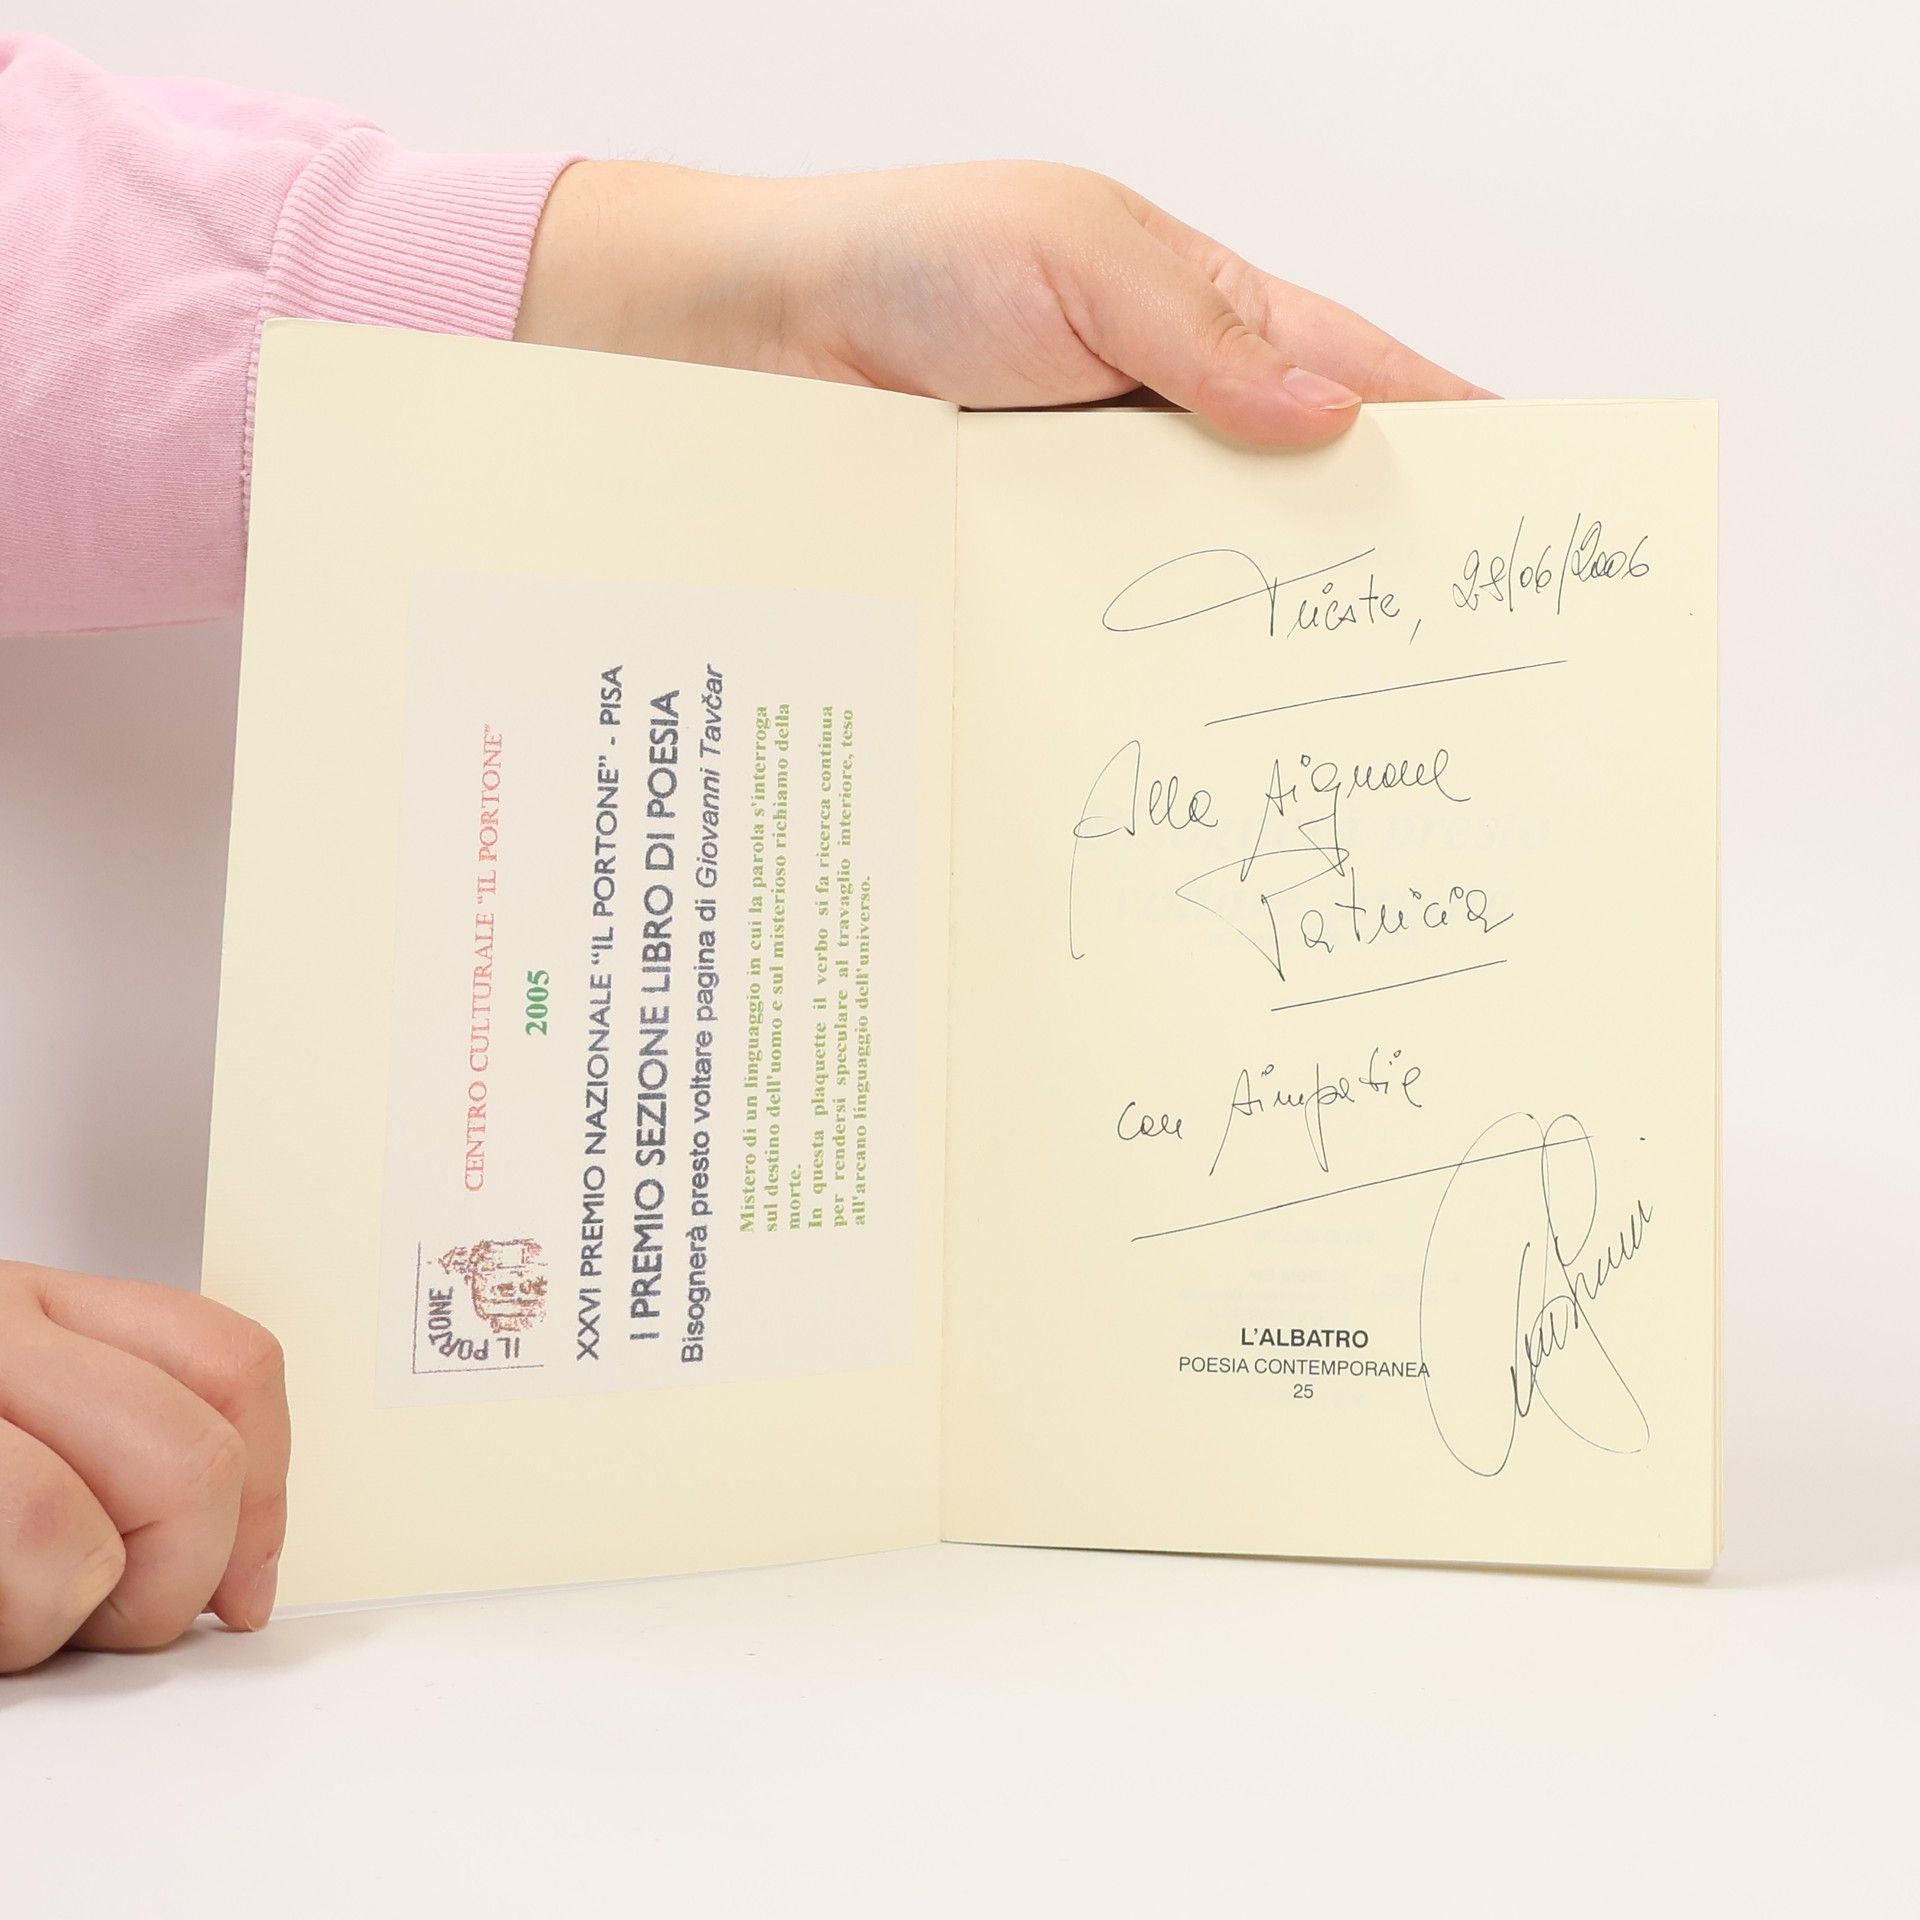 IL PORTONE
CENTRO CULTURALE "IL PORTONE"
2005
XXVI PREMIO NAZIONALE "IL PORTONE" - PISA
I PREMIO SEZIONE LIBRO DI POESIA
Bisognerà presto voltare pagina di Giovanni Tavčar
Mistero di un linguaggio in cui la parola s'interroga
sul destino dell'uomo e sul misterioso richiamo della
morte.
In questa plaquette il verbo si fa ricerca continua
per rendersi speculare al travaglio interiore, teso
all'arcano linguaggio dell'universo.
Trieste, 28/06/2006
Alla signora
Patricia
con simpatia
L'ALBATRO
POESIA CONTEMPORANEA
25